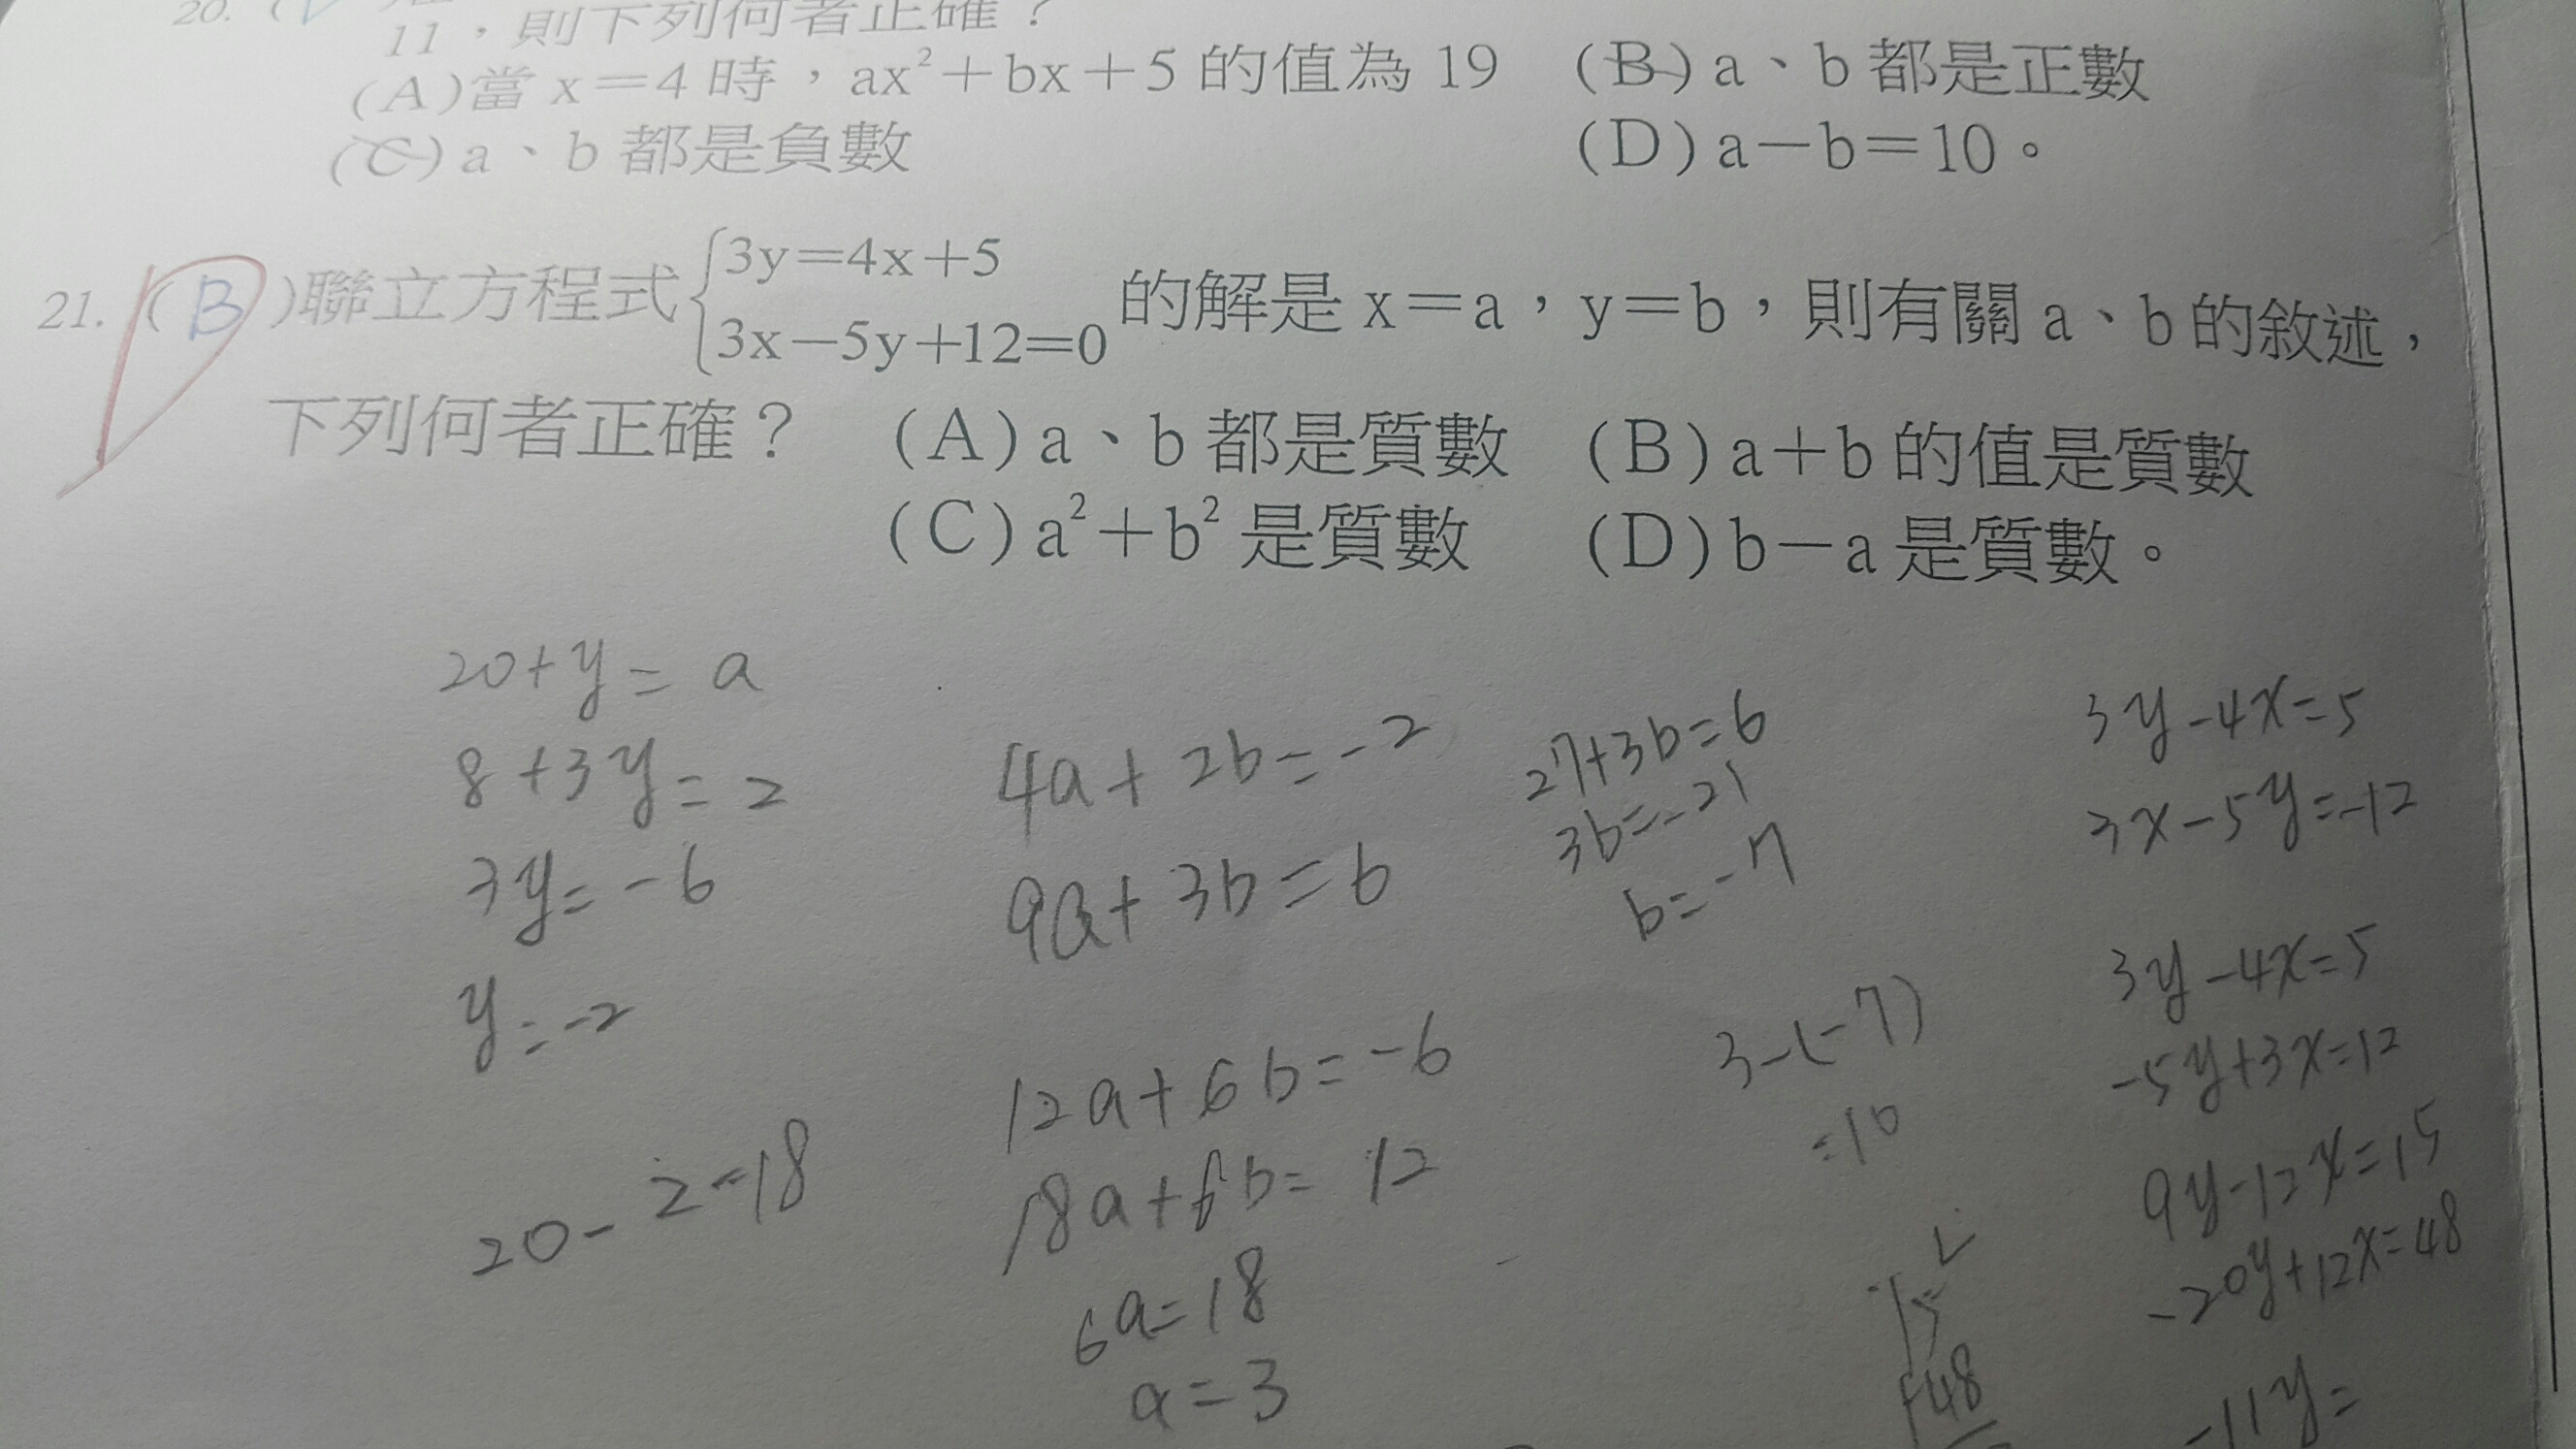 20. (
11，則下列何者正確？
(A)當 x＝4 時，ax²＋bx＋5 的值為 19 (B) a、b 都是正數
(C) a、b 都是負數 (D) a－b＝10。
21. (B)聯立方程式{3y＝4x＋5
3x－5y＋12＝0 的解是 x＝a，y＝b，則有關 a、b 的敘述，
下列何者正確？ (A) a、b 都是質數 (B) a＋b 的值是質數
(C) a²＋b² 是質數 (D) b－a 是質數。
20+y=a
8+3y=2
3y=-6
y=-2
20-2=18
4a+2b=-2
9a+3b=6
12a+6b=-6
18a+6b=12
6a=18
a=3
27+3b=6
3b=-21
b=-7
3-(-7)
=10
15
+48
3y-4x=5
3x-5y=-12
3y-4x=5
-5y+3x=12
9y-12x=15
-20y+12x=48
-11y=